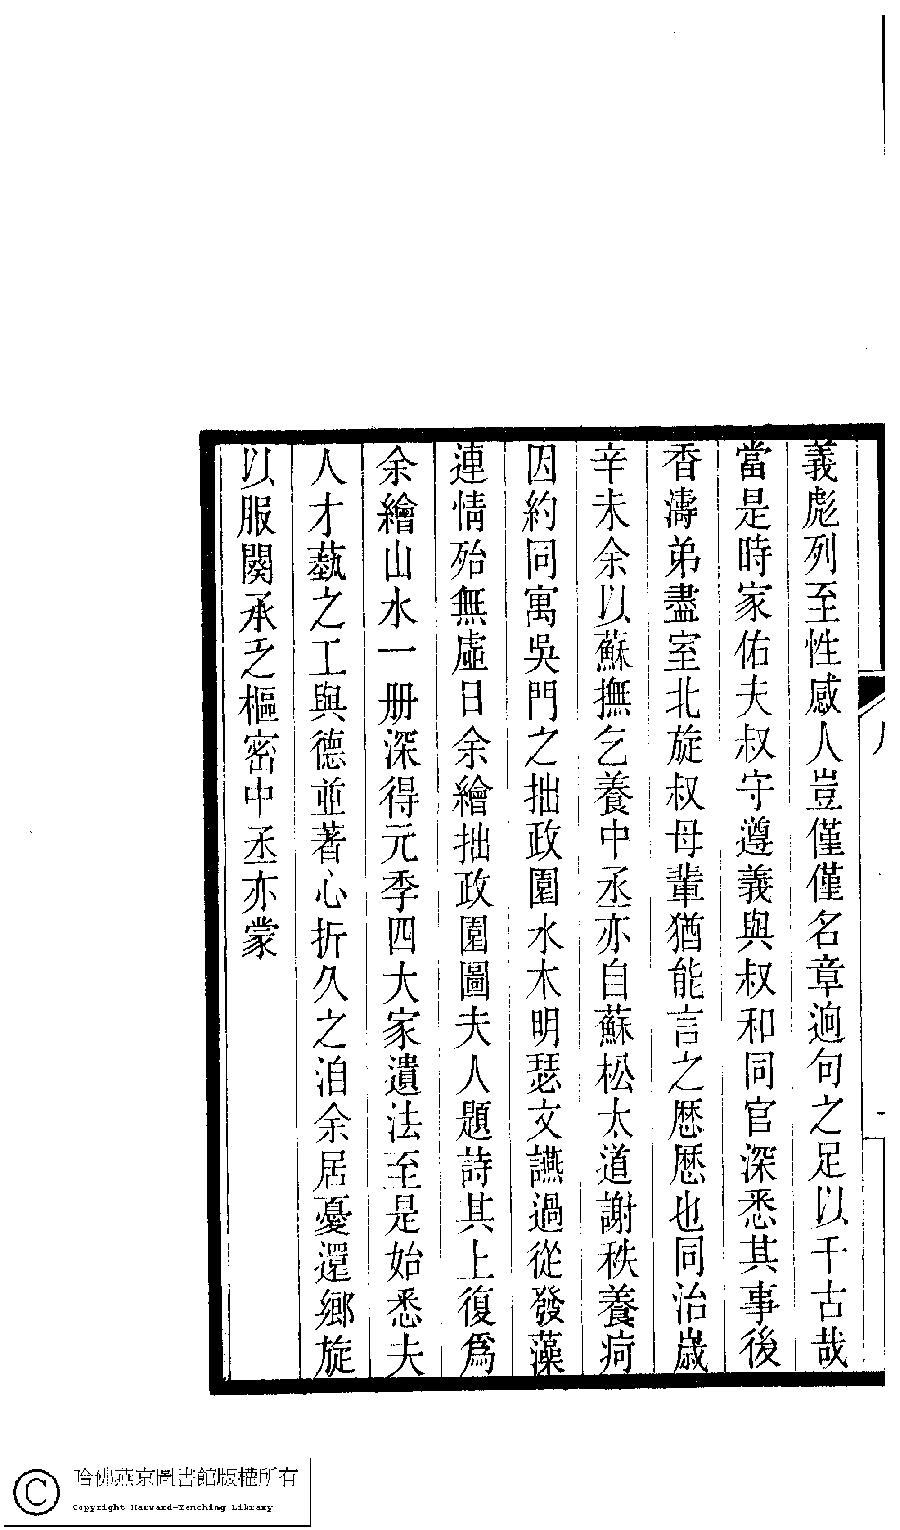 義彪列至性感人豈僅僅名章逈句之足以千古哉
當是時家佑夫叔守遵義與叔和同官深悉其事後
香濤弟盡室北旋叔母輩猶能言之歷歷也同治歲
辛未余以蘇撫乞養中丞亦自蘇松太道謝秩養疴
因約同寓吳門之拙政園水木明瑟文讌過從發藻
連情殆無虛日余繪拙政園圖夫人題詩其上復爲
余繪山水一册深得元季四大家遺法至是始悉夫
人才藝之工與德並著心折久之洎余居憂還鄉旋
以服闋承乏樞密中丞亦蒙
哈佛燕京圖書館版權所有
Copyright Harvard-Yenching Library